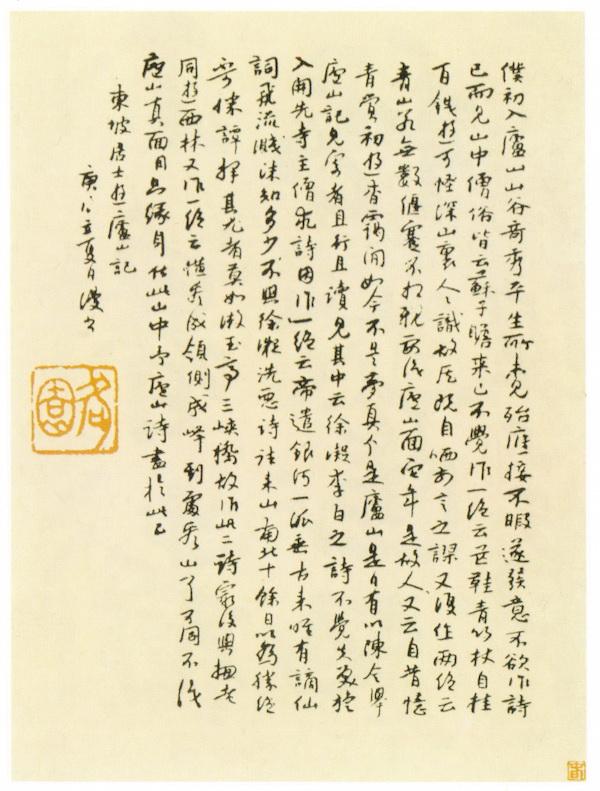 僕初入廬山山谷奇秀平生所未見殆應接不暇遂發意不欲作詩
已而見山中僧俗皆云蘇子瞻來已不覺作一絕云芒鞋青竹杖自挂
百錢遊可怪深山裏人人識故侯既自哂前言之謬又復作兩絕云
青山若無數偃蹇不相親要識廬山面它年是故人又云自昔憶
青賞初遊杳靄間如今不是夢真个是廬山是日有以陳令舉
廬山記見寄者且行且讀見其中云徐凝李白之詩不覺失笑旋
入開先寺主僧求詩因作一絕云帝遣銀河一派垂古來唯有謫仙
詞飛流濺沫知多少不與徐凝洗惡詩往來山南北十餘日以為勝絕
不可勝譚擇其尤者莫如漱玉亭三峽橋故作此二詩最後與總老
同遊西林又作一絕云橫看成領側成峰到處看山了不同不識
廬山真面目只緣身在此山中予廬山詩盡於此已
東坡居士遊廬山記
夏日漫書